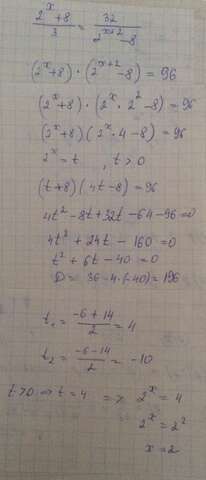 (2^x+8)/3 = 32/(2^(x+2)-8)
(2^x+8)·(2^(x+2)-8)=96
(2^x+8)·(2^x·2^2-8)=96
(2^x+8)(2^x·4-8)=96
2^x=t , t>0
(t+8)(4t-8)=96
4t^2-8t+32t-64-96=0
4t^2+24t-160=0
t^2+6t-40=0
D= 36-4·(-40)=196
t₁= (-6+14)/2 = 4
t₂= (-6-14)/2 = -10
t>0 => t=4 => 2^x=4
2^x=2^2
x=2